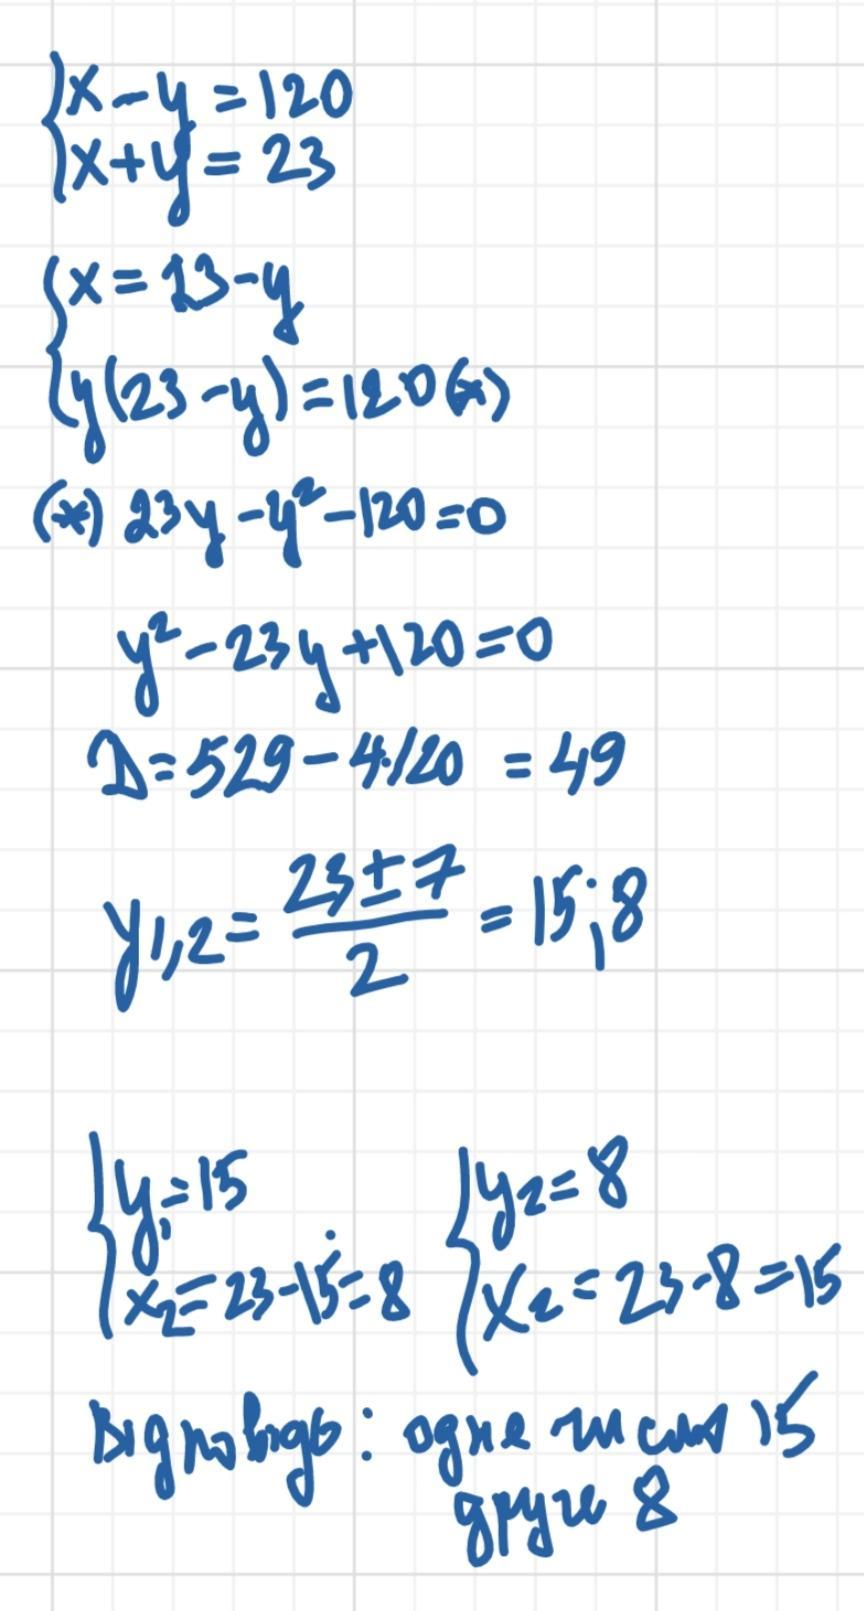 x-y=120
x+y=23
x=23-y
y(23-y)=120(*)
(*) 23y-y²-120=0
y²-23y+120=0
D=529-4·120=49
y1,2=(23±7)/2=15;8
y1=15
x2=23-15=8
y2=8
x2=23-8=15
Відповідь: одне число 15
друге 8